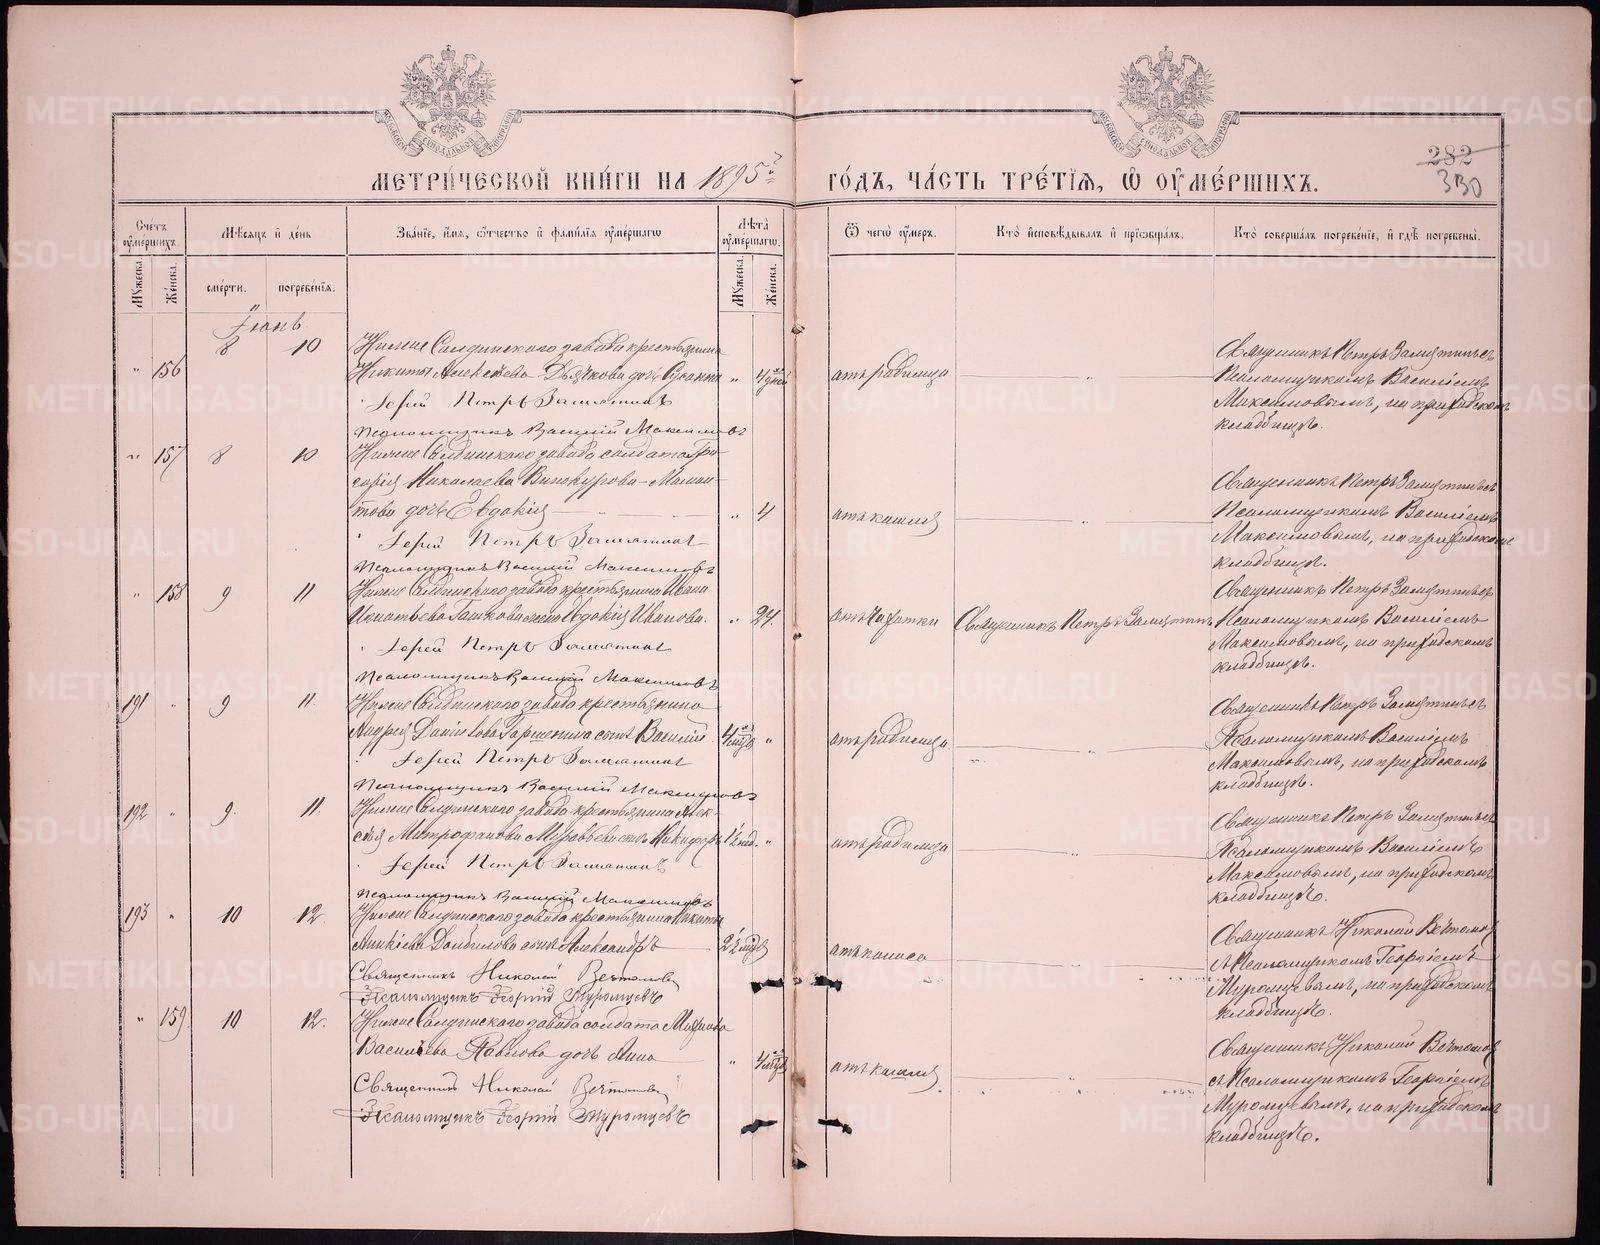 282
330
МЕТРИ́ЧЕСКОЙ КНИ́ГИ НА 1895й ГО́ДЪ, ЧА́СТЬ ТРЕ́ТІЯ, Ѡ ОУМЕ́РШИХЪ.
Сче́тъ оумершихъ.
Мѣсяцъ и де́нь
Зва́ніе, и́мя, ѻтчество и фами́лія оуме́ршагω
Лѣта̀ оуме́ршагω.
Ѿ чегὼ оу́меръ.
Кто̀ исповѣ́дывалъ и пріѡбща́лъ.
Кто̀ соверша́лъ погребе́ніе, и гдѣ̀ погребены̀.
Му́жеска.
Же́нска.
сме́рти.
погребе́нїѧ.
Му́жеска.
Же́нска.
Іюнь
" 156 8 10
Нижне Салдинскаго завода крестьянина
Никиты Алексѣева Дьячкова дочь Сусанна " 4 дней
Іерей Петръ Замятинъ
Псаломщикъ Василій Максимовъ
отъ родимца "
Священникъ Петръ Замятинъ съ
Псаломщикомъ Василіемъ
Максимовымъ, на приходскомъ
кладбищѣ.
" 157 8 10
Нижне Салдинскаго завода солдата Гри-
горія Николаева Винокурова-Маман-
това дочь Евдокія " 4
Іерей Петръ Замятинъ
Псаломщикъ Василій Максимовъ
отъ кашля "
Священникъ Петръ Замятинъ съ
Псаломщикомъ Василіемъ
Максимовымъ, на приходскомъ
кладбищѣ.
" 158 9 11
Нижне Салдинскаго завода крестьянина Ивана
Игнатьева жена Евдокія Иванова. " 24.
Іерей Петръ Замятинъ
Псаломщикъ Василій Максимовъ
отъ чахотки
Священникъ Петръ Замятинъ
Священникъ Петръ Замятинъ съ
Псаломщикомъ Василіемъ
Максимовымъ, на приходскомъ
кладбищѣ.
191 " 9 11.
Нижне Салдинскаго завода крестьянина
Андрея Данилова Гаршенина сынъ Василій 4 "
Іерей Петръ Замятинъ
Псаломщикъ Василій Максимовъ
отъ родимца "
Священникъ Петръ Замятинъ съ
Псаломщикомъ Василіемъ
Максимовымъ, на приходскомъ
кладбищѣ.
192 " 9. 11.
Нижне Салдинскаго завода крестьянина Алек-
сѣя Митрофанова Муравьева сынъ Никифоръ 1½ нед. "
Іерей Петръ Замятинъ
Псаломщикъ Василій Максимовъ
отъ родимца "
Священникъ Петръ Замятинъ съ
Псаломщикомъ Василіемъ
Максимовымъ, на приходскомъ
кладбищѣ.
193 " 10 12.
Нижне Салдинскаго завода крестьянина Никиты
сынъ Александръ
Священникъ Николай Вечтомовъ
Псаломщикъ Георгій Муромцевъ
отъ поноса
Священникъ Николай Вечтомовъ
съ Псаломщикомъ Георгіемъ
Муромцевымъ, на приходскомъ
кладбищѣ.
" 159 10 12.
Нижне Салдинскаго завода солдата Михаила
Васильева Павлова дочь Анна " 4
Священникъ Николай Вечтомовъ
Псаломщикъ Георгій Муромцевъ
отъ кашля "
Священникъ Николай Вечтомовъ
съ Псаломщикомъ Георгіемъ
Муромцевымъ, на приходскомъ
кладбищѣ.
METRIKI.GASO-URAL.RU